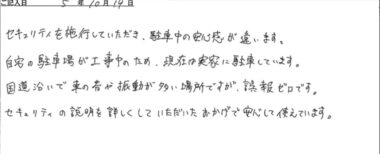 ご記入日 5年10月14日
セキュリティを施行していただき、駐車中の安心感が違います。
自宅の駐車場が工事中のため、現在は実家に駐車しています。
国道沿いで車の音や振動が多い場所ですが、誤報ゼロです。
セキュリティの説明を詳しくしていただいたおかげで安心して使えています。